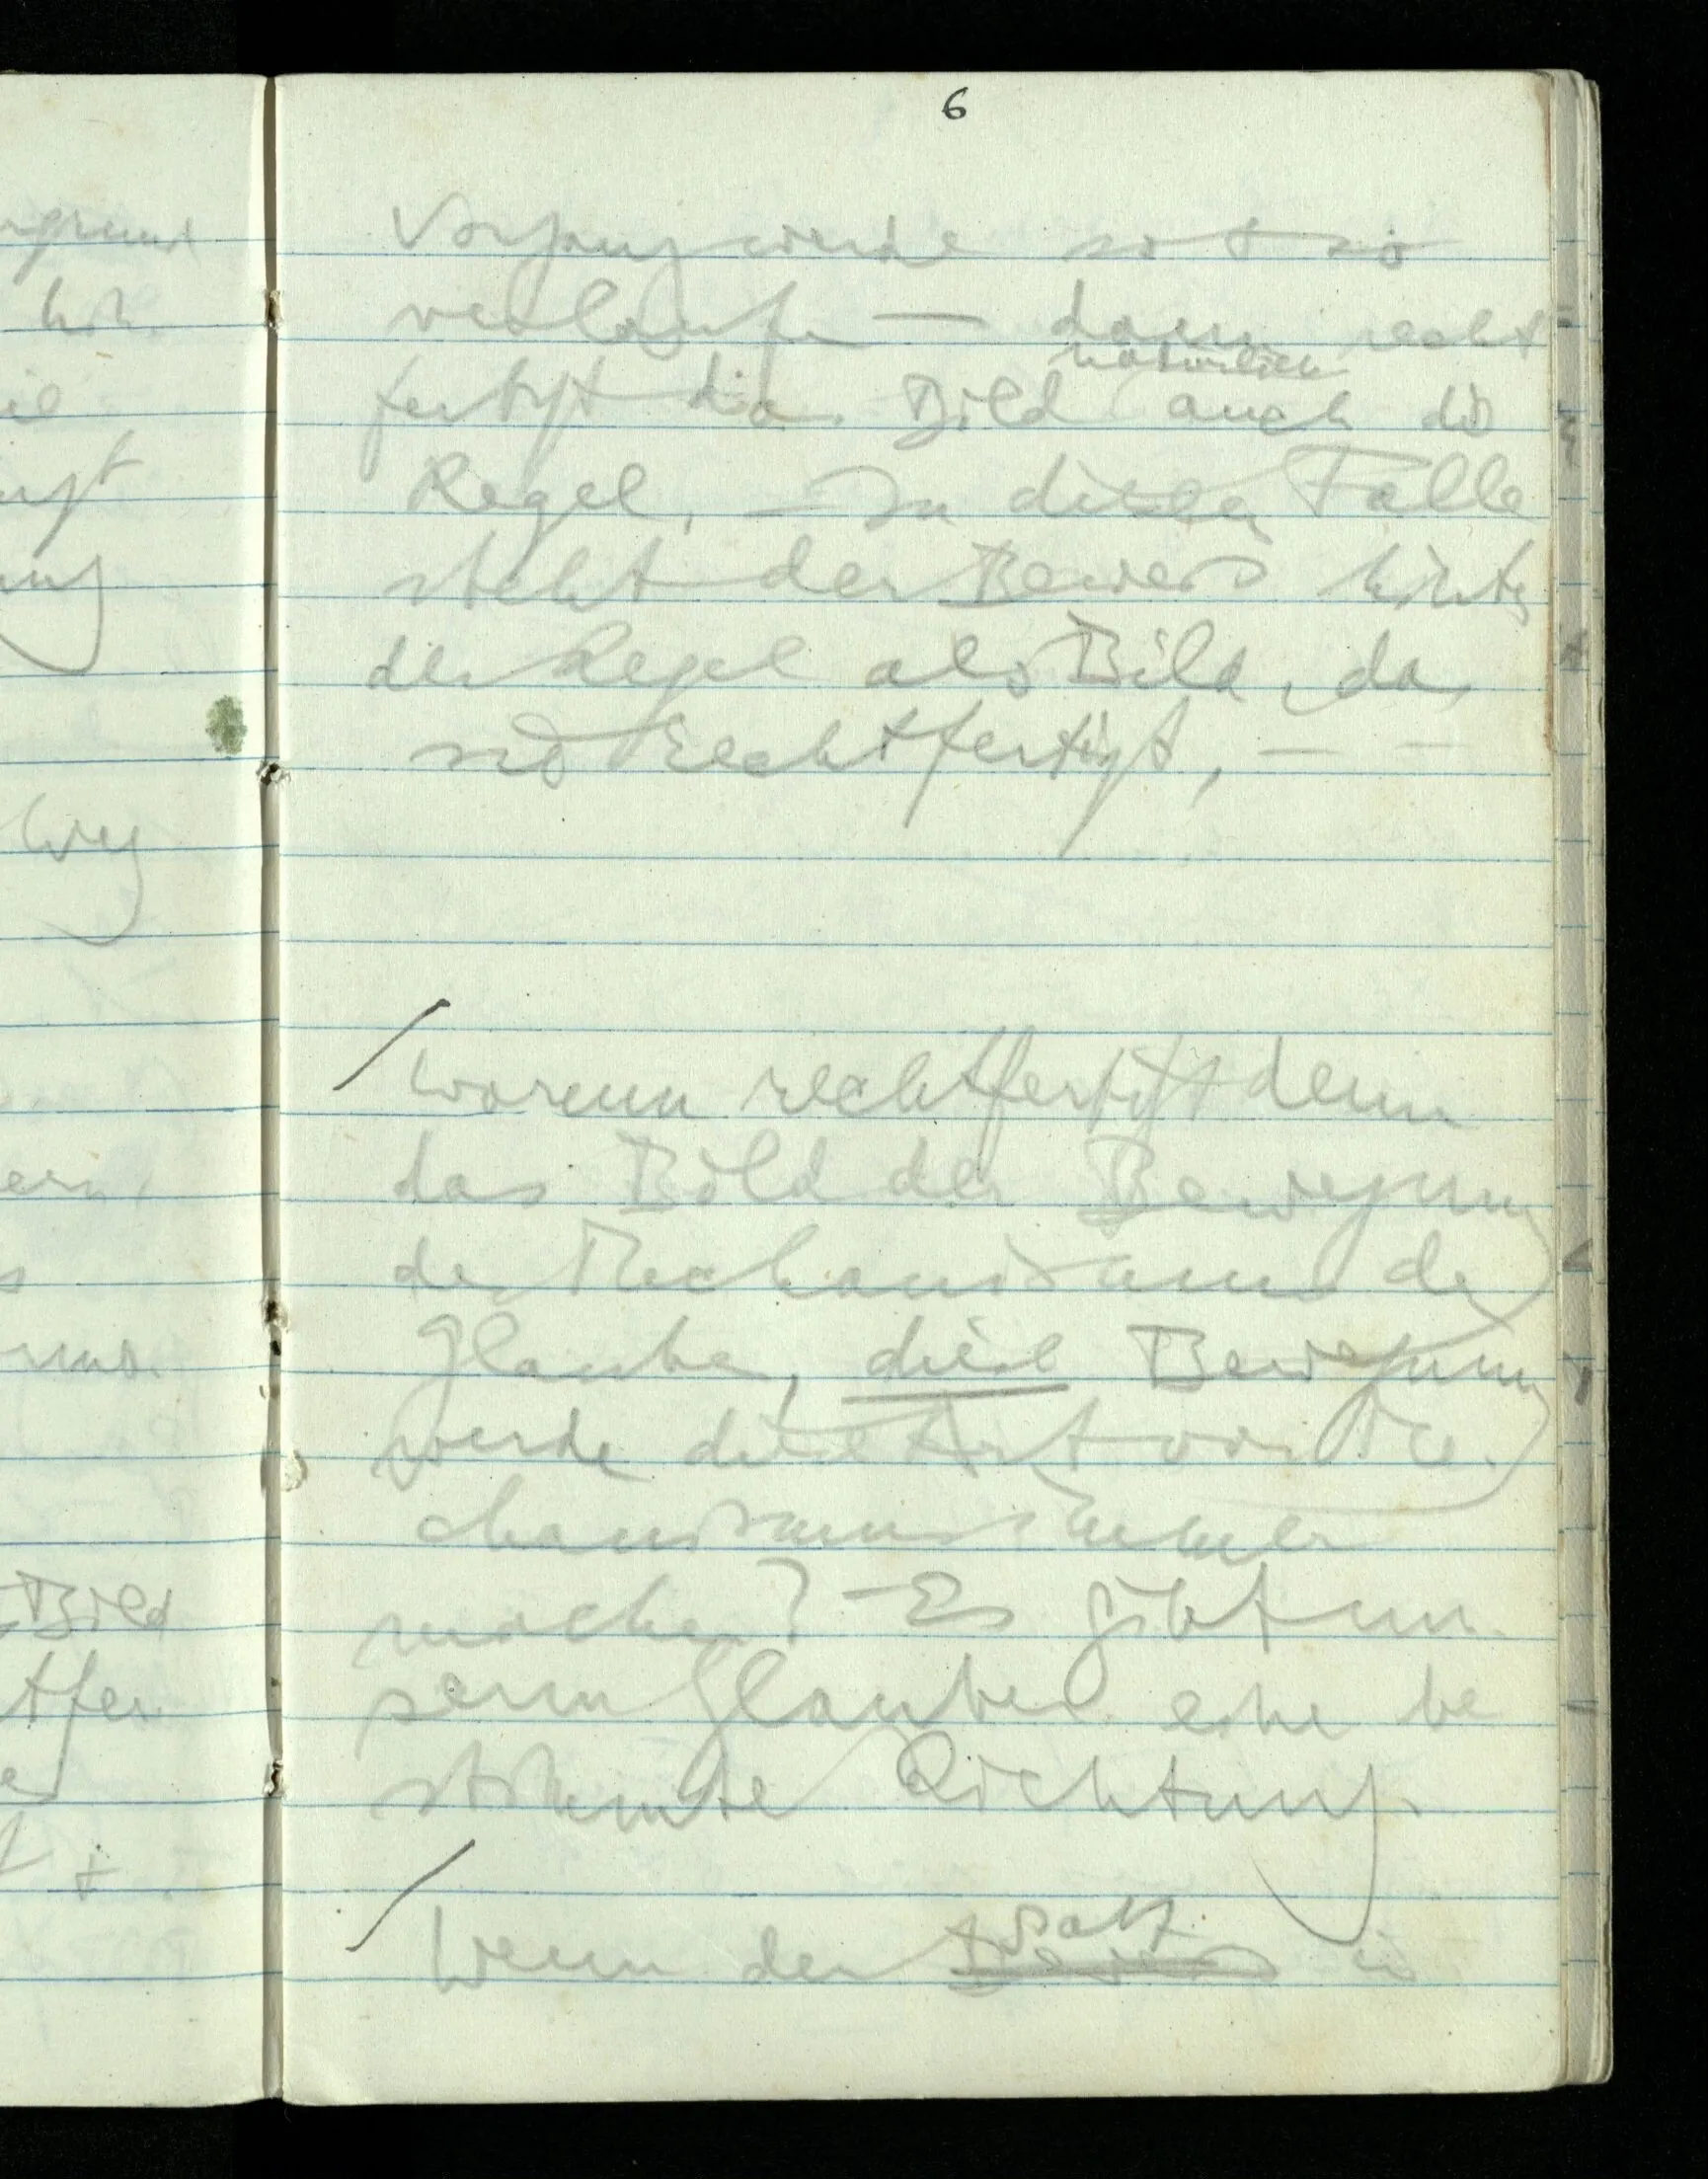 6
Vorgang werde so + so
verlaufen — dann recht
natürlich
fertigt das Bild auch die
Regel. — In diesem Falle
steht der Beweis hinter
der Regel als Bild, das
sie rechtfertigt. — —
Warum rechtfertigt denn
das Bild der Bewegung
des Mechanismus den
Glauben, diese Bewegung
werde diese Art von Me-
chanismus immer
machen? — Es gibt un-
serm Glauben eine be
stimmte Richtung.
Satz
Wenn der Beweis in
Weg
Bild
tfer